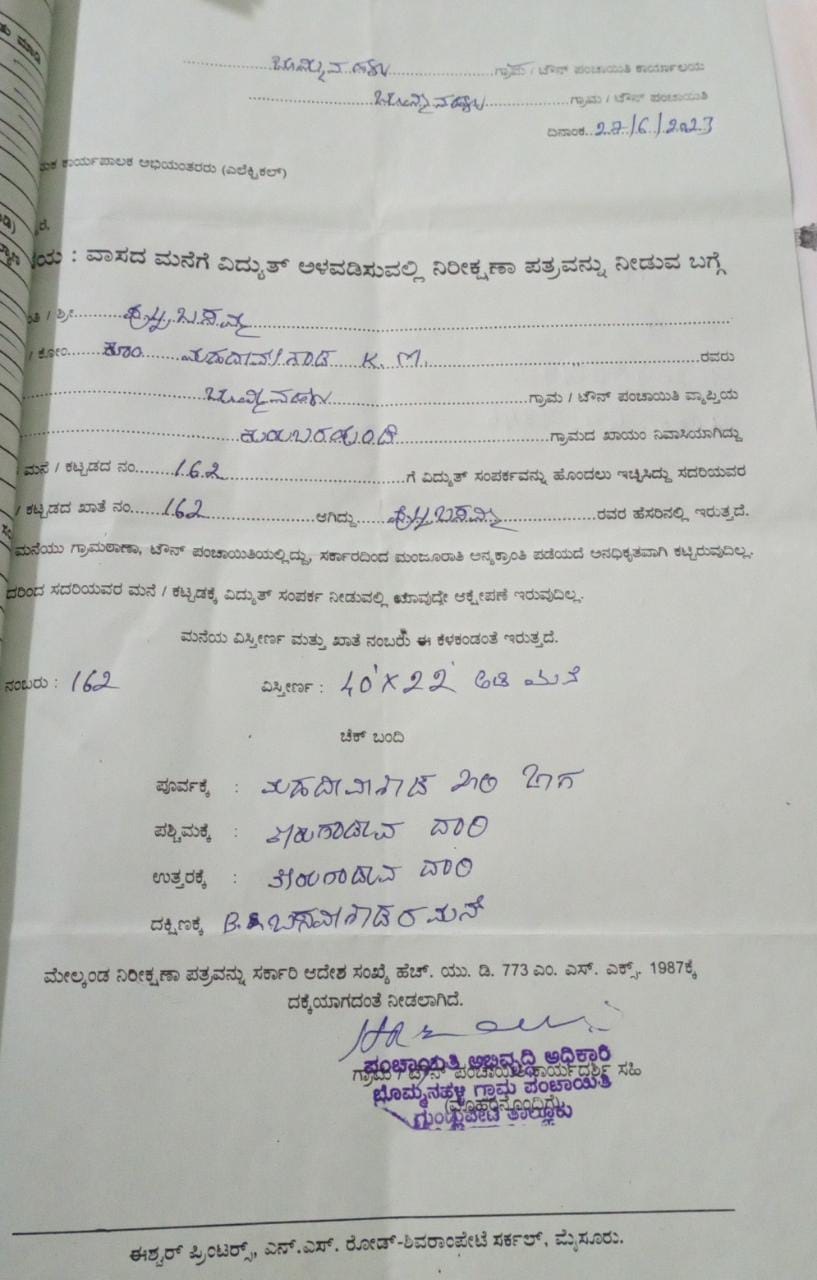 ಬೊಮ್ಮನಹಳ್ಳಿ ಗ್ರಾಮ / ಟೌನ್ ಪಂಚಾಯಿತಿ ಕಾರ್ಯಾಲಯ
ಬೊಮ್ಮನಹಳ್ಳಿ ಗ್ರಾಮ / ಟೌನ್ ಪಂಚಾಯಿತಿ
ದಿನಾಂಕ..27/6/2023
ಕಾರ್ಯಪಾಲಕ ಅಭಿಯಂತರರು (ಎಲೆಕ್ಟ್ರಿಕಲ್)
: ವಾಸದ ಮನೆಗೆ ವಿದ್ಯುತ್ ಅಳವಡಿಸುವಲ್ಲಿ ನಿರೀಕ್ಷಣಾ ಪತ್ರವನ್ನು ನೀಡುವ ಬಗ್ಗೆ
/ ಶ್ರೀ
/ ಕೋಂ ಕೋಂ ಮಹದೇವಗೌಡ K. M. ರವರು
ಬೊಮ್ಮನಹಳ್ಳಿ ಗ್ರಾಮ / ಟೌನ್ ಪಂಚಾಯಿತಿ ವ್ಯಾಪ್ತಿಯ
ಗ್ರಾಮದ ಖಾಯಂ ನಿವಾಸಿಯಾಗಿದ್ದು
ಮನೆ / ಕಟ್ಟಡದ ನಂ. 162 ಗೆ ವಿದ್ಯುತ್ ಸಂಪರ್ಕವನ್ನು ಹೊಂದಲು ಇಚ್ಛಿಸಿದ್ದು ಸದರಿಯವರ
/ ಕಟ್ಟಡದ ಖಾತೆ ನಂ. 162 ಆಗಿದ್ದು ರವರ ಹೆಸರಿನಲ್ಲಿ ಇರುತ್ತದೆ.
ಮನೆಯು ಗ್ರಾಮಠಾಣಾ, ಟೌನ್ ಪಂಚಾಯಿತಿಯಲ್ಲಿದ್ದು, ಸರ್ಕಾರದಿಂದ ಮಂಜೂರಾತಿ ಅನ್ಯಕ್ರಾಂತಿ ಪಡೆಯದೆ ಅನಧಿಕೃತವಾಗಿ ಕಟ್ಟಿರುವುದಿಲ್ಲ.
ಸದರಿಯವರ ಮನೆ / ಕಟ್ಟಡಕ್ಕೆ ವಿದ್ಯುತ್ ಸಂಪರ್ಕ ನೀಡುವಲ್ಲಿ ಯಾವುದೇ ಆಕ್ಷೇಪಣೆ ಇರುವುದಿಲ್ಲ.
ಮನೆಯ ವಿಸ್ತೀರ್ಣ ಮತ್ತು ಖಾತೆ ನಂಬರು ಈ ಕೆಳಕಂಡಂತೆ ಇರುತ್ತದೆ.
ನಂಬರು : 162 ವಿಸ್ತೀರ್ಣ : 40'X22' ಅಡಿ ಮನೆ
ಚೆಕ್ ಬಂದಿ
ಪೂರ್ವಕ್ಕೆ : ಮಹದೇವಗೌಡ ಖಾಲಿ ಜಾಗ
ಪಶ್ಚಿಮಕ್ಕೆ : ತಿರುಗಾಡುವ ದಾರಿ
ಉತ್ತರಕ್ಕೆ : ತಿರುಗಾಡುವ ದಾರಿ
ದಕ್ಷಿಣಕ್ಕೆ ಬಸವೇಗೌಡರ ಮನೆ
ಮೇಲ್ಕಂಡ ನಿರೀಕ್ಷಣಾ ಪತ್ರವನ್ನು ಸರ್ಕಾರಿ ಆದೇಶ ಸಂಖ್ಯೆ ಹೆಚ್. ಯು. ಡಿ. 773 ಎಂ. ಎಸ್. ಎಕ್ಸ್. 1987ಕ್ಕೆ
ದಕ್ಕೆಯಾಗದಂತೆ ನೀಡಲಾಗಿದೆ.
ಪಂಚಾಯಿತಿ ಅಭಿವೃದ್ಧಿ ಅಧಿಕಾರಿ
ಗ್ರಾಮ / ಟೌನ್ ಪಂಚಾಯಿತಿ ಕಾರ್ಯದರ್ಶಿ ಸಹಿ
ಬೊಮ್ಮನಹಳ್ಳಿ ಗ್ರಾಮ ಪಂಚಾಯಿತಿ
(ಮೊಹರಿನೊಂದಿಗೆ)
ಗುಂಡ್ಲುಪೇಟೆ ತಾಲ್ಲೂಕು
ಈಶ್ವರ್ ಪ್ರಿಂಟರ್ಸ್, ಎನ್.ಎಸ್. ರೋಡ್-ಶಿವರಾಂಪೇಟೆ ಸರ್ಕಲ್, ಮೈಸೂರು.